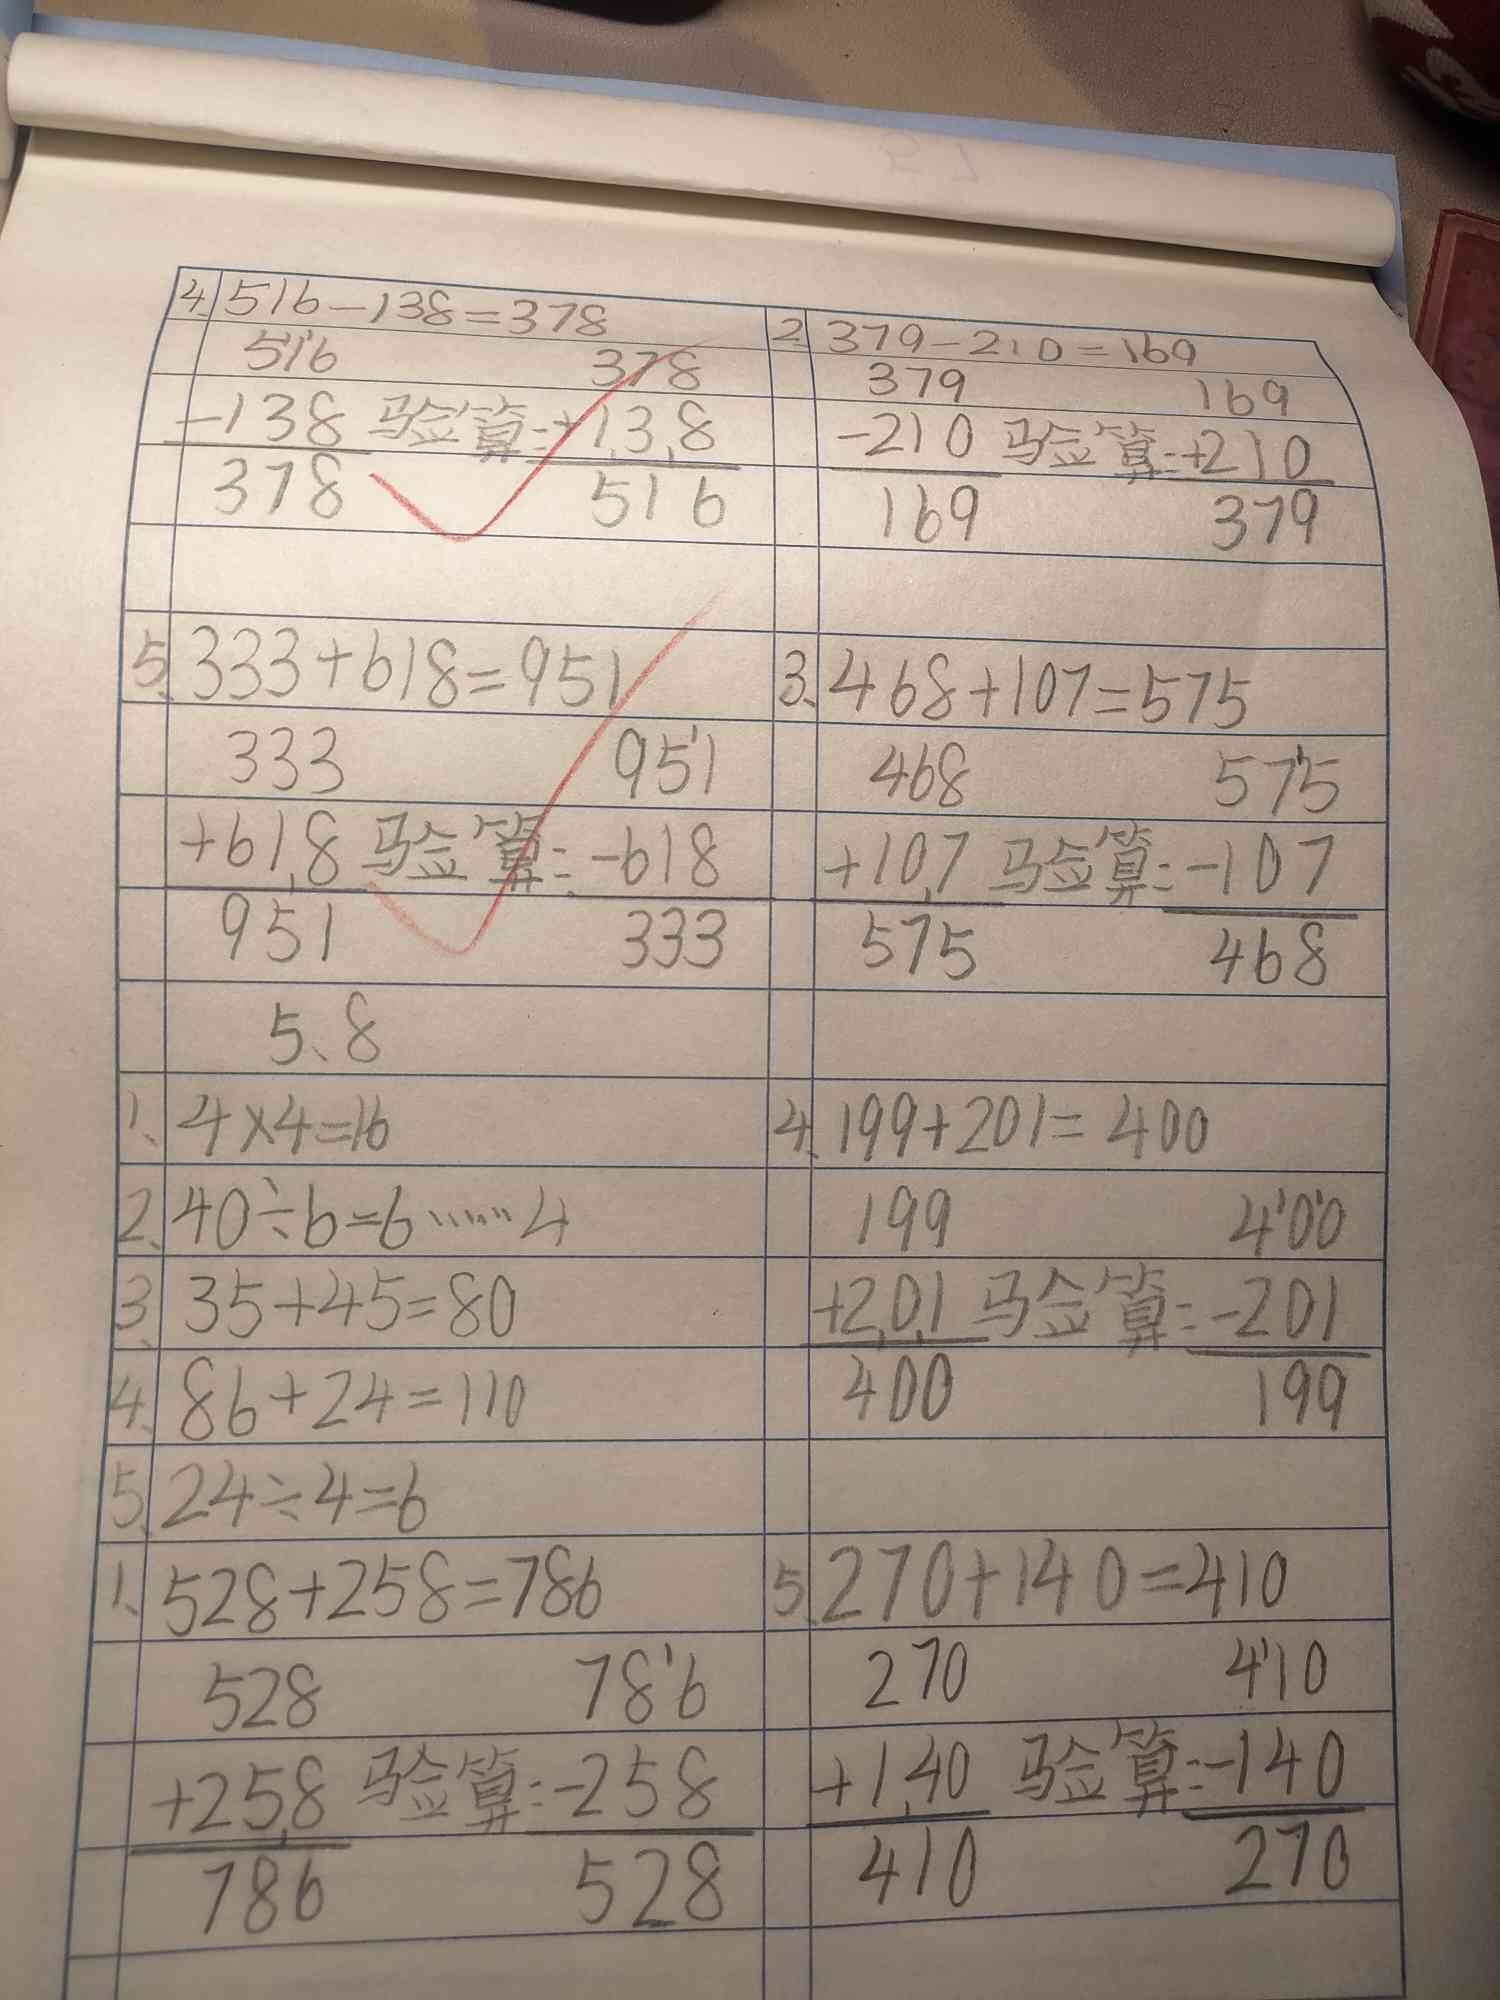 4. 516-138=378
516 378
-138 验算:+138
378 516
5、333+618=951
333 951
+618 验算:-618
951 333
5、8
1、4×4=16
2、40÷6=6……4
3、35+45=80
4、86+24=110
5、24÷4=6
1、528+258=786
528 786
+258 验算:-258
786 528
2. 379-210=169
379 169
-210 验算:+210
169 379
3、468+107=575
468 575
+107 验算:-107
575 468
4、199+201=400
199 400
+201 验算:-201
400 199
5、270+140=410
270 410
+140 验算:-140
410 270